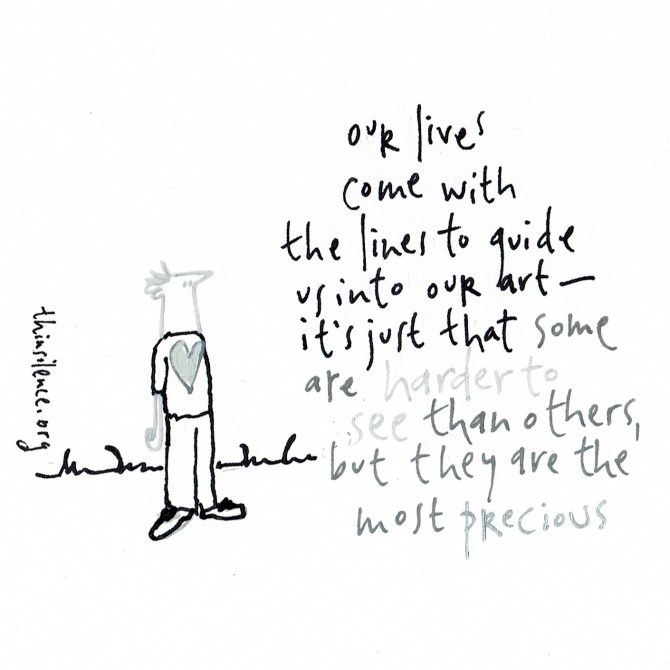 our lives
come with
the lines to guide
us into our art —
it's just that some
are harder to
see than others,
but they are the
most precious
thinsilence.org